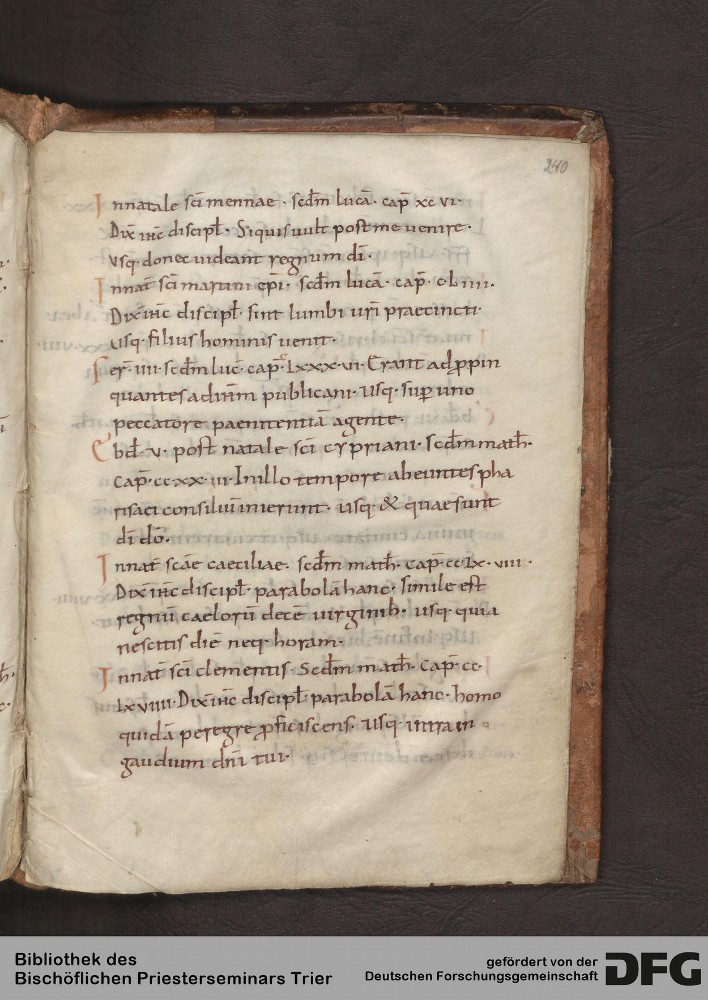 240
Innatale sc̄i mennae · scd̄m lucā · cap̄ xc vi ·
Dix̄ ih̄c discipl̄ · Siquis uult post me uenire ·
Usq· donec uideant regnum dī ·
Innat̄ sc̄i martini ep̄i · scd̄m lucā · cap̄ · c · L · iiii ·
Dix̄ ih̄c discipl̄ · sint lumbi ur̄i praecincti ·
usq· filius hominis uenit ·
Fer̄ · iiii · scd̄m luc̄ · cap̄ · Lxxx · vi · Erant adp̄pin
quantes ad ih̄m publicani · usq · sup̄ uno
peccatore paenitentiā agente ·
Ebd̄ · v · post natale sc̄i cypriani · scd̄m math̄ ·
cap̄ · cc · xx · iii · In illo tempore abeuntes pha
risaei consiliū inierunt · usq · & quae sunt
dī dō ·
Innat̄ sc̄ae caeciliae · scd̄m math̄ · cap̄ · cc · Lx · viii ·
Dix̄ ih̄c discipl̄ · parabolā hanc · simile est
regnū caelorū decē virginib· · usq· quia
nescitis diē neq· horam ·
Innat̄ sc̄i clementis · Scd̄m math̄ · cap̄ · cc ·
Lx · viiii · Dix̄ ih̄c discipl̄ parabolā hanc · homo
quidā peregre p̄ficiscens · usq· intra in
gaudium dn̄i tui ·
Bibliothek des
Bischöflichen Priesterseminars Trier
gefördert von der
Deutschen Forschungsgemeinschaft
DFG